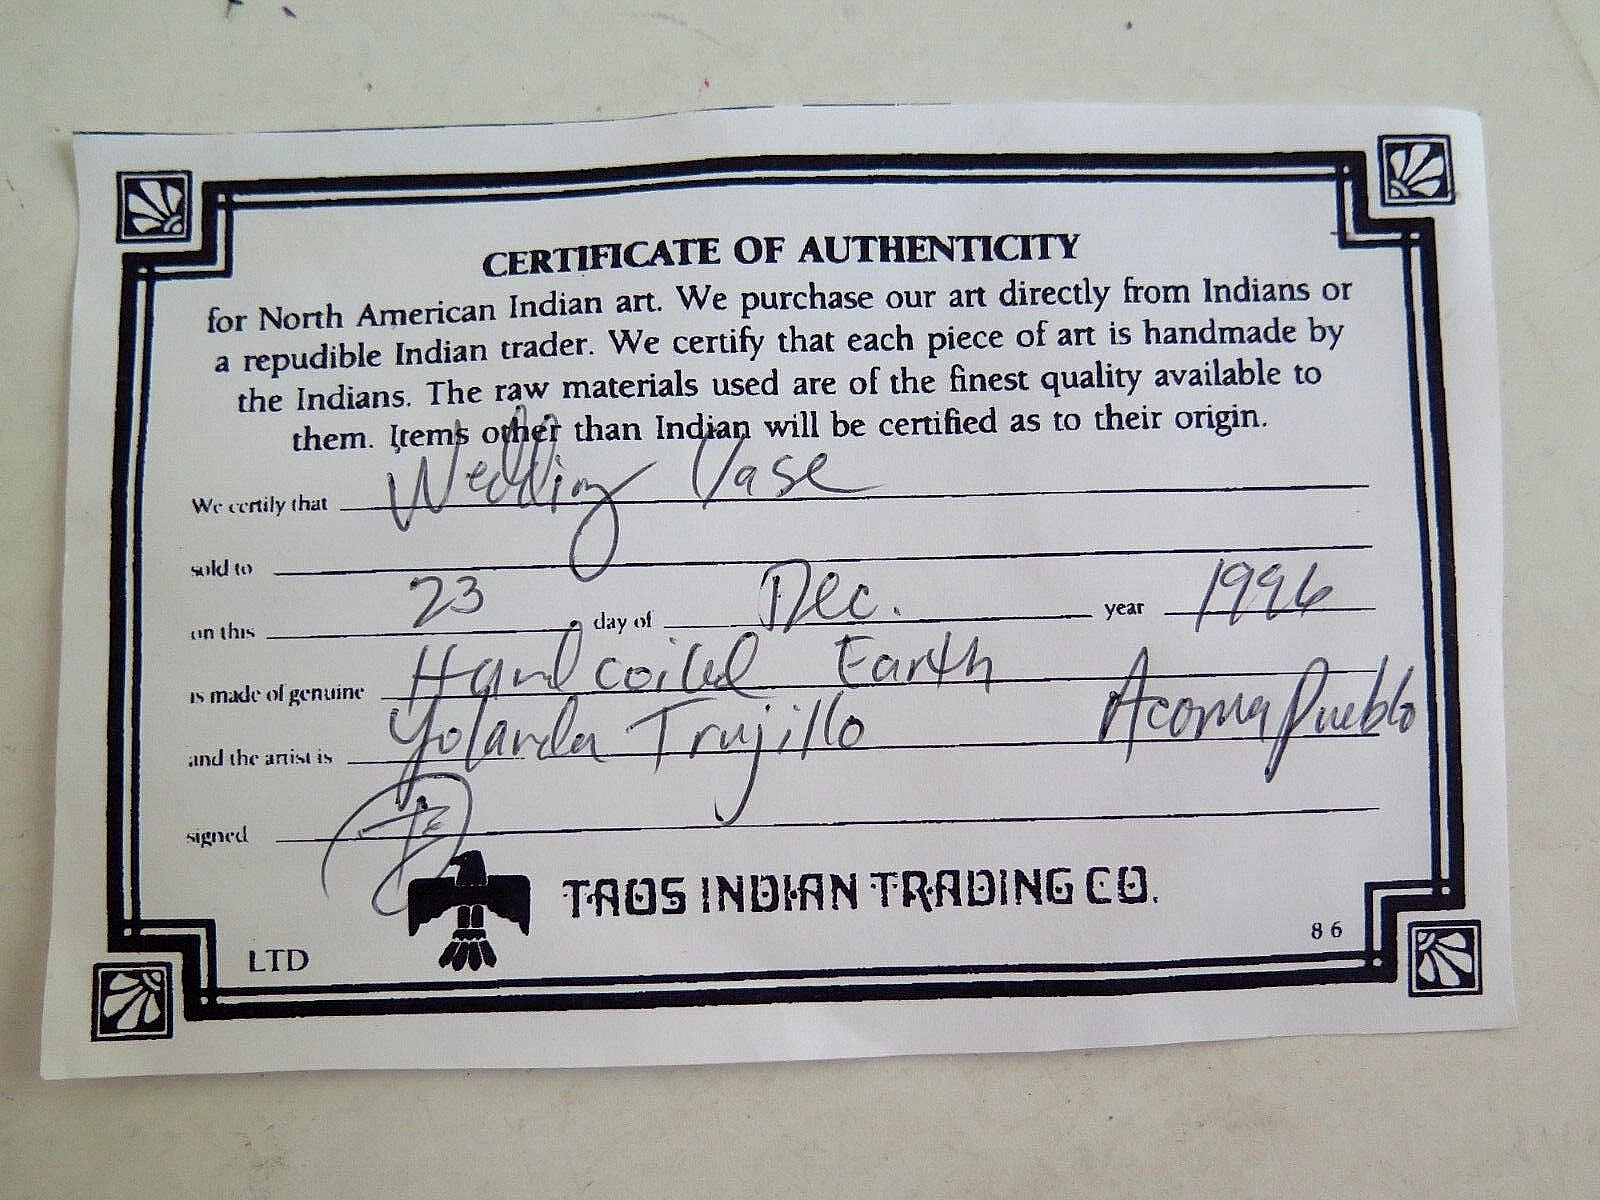 CERTIFICATE OF AUTHENTICITY
for North American Indian art. We purchase our art directly from Indians or
a repudible Indian trader. We certify that each piece of art is handmade by
the Indians. The raw materials used are of the finest quality available to
them. Items other than Indian will be certified as to their origin.
We certify that Wedding Vase
sold to
on this 23 day of Dec. year 1996
is made of genuine Hand coiled Earth
and the artist is Yolanda Trujillo Acoma Pueblo
signed
TAOS INDIAN TRADING CO.
LTD
86